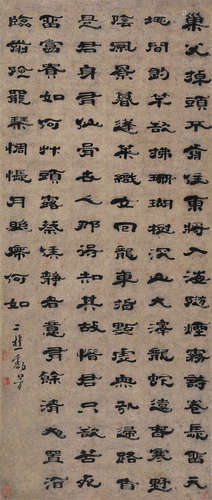 巢父掉頭不肯住東將入海隨煙霧詩卷長留天
地間釣竿欲拂珊瑚樹深山大澤龍蛇遠春寒野
陰風景暮蓬萊織女回龍車指點虛無引歸路自
是君身有仙骨世人那得知其故惜君只欲苦死
留富貴如何草頭露蔡侯靜者意有餘清夜置酒
臨前除罷琴惆悵月照席何如
二樵